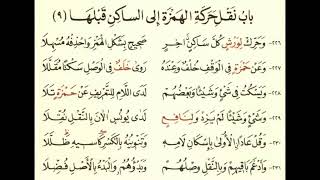 بَابُ نَقْلِ حَرَكَةِ الْهَمْزَةِ إِلَى السَّاكِنِ قَبْلَهَا (٩)
٢٢٦- وَحَرِّكْ لِوَرْشٍ كُلَّ سَاكِنٍ آخِرٍ صَحِيحٍ بِشَكْلِ الْهَمْزِ وَاحْذِفْهُ مُسْهِلَا
٢٢٧- وَعَنْ حَمْزَةٍ فِي الْوَقْفِ خُلْفٌ وَعِنْدَهُ رَوَى خَلَفٌ فِي الْوَصْلِ سَكْتًا مُقَلَّلَا
٢٢٨- وَيَسْكُتُ فِي شَيْءٍ وَشَيْئًا وَبَعْضُهُمْ لَدَى اللَّامِ لِلتَّعْرِيفِ عَنْ حَمْزَةٍ تَلَا
٢٢٩- وَشَيْءٍ وَشَيْئًا لَمْ يَزِدْ وَلِنَافِعٍ لَدَى يُونُسٍ آلَانَ بِالنَّقْلِ نُقِّلَا
٢٣٠- وَقُلْ عَادًا الْأُولَى بِإِسْكَانِ لَامِهِ وَتَنْوِينُهُ بِالْكَسْرِ كَاسِيهِ ظَلَّلَا
٢٣١- وَأَدْغَمَ بَاقِيهِمْ وَبِالنَّقْلِ وَصْلُهُمْ وَبَدْؤُهُمْ وَالْبَدْءُ بِالْأَصْلِ فُضِّلَا